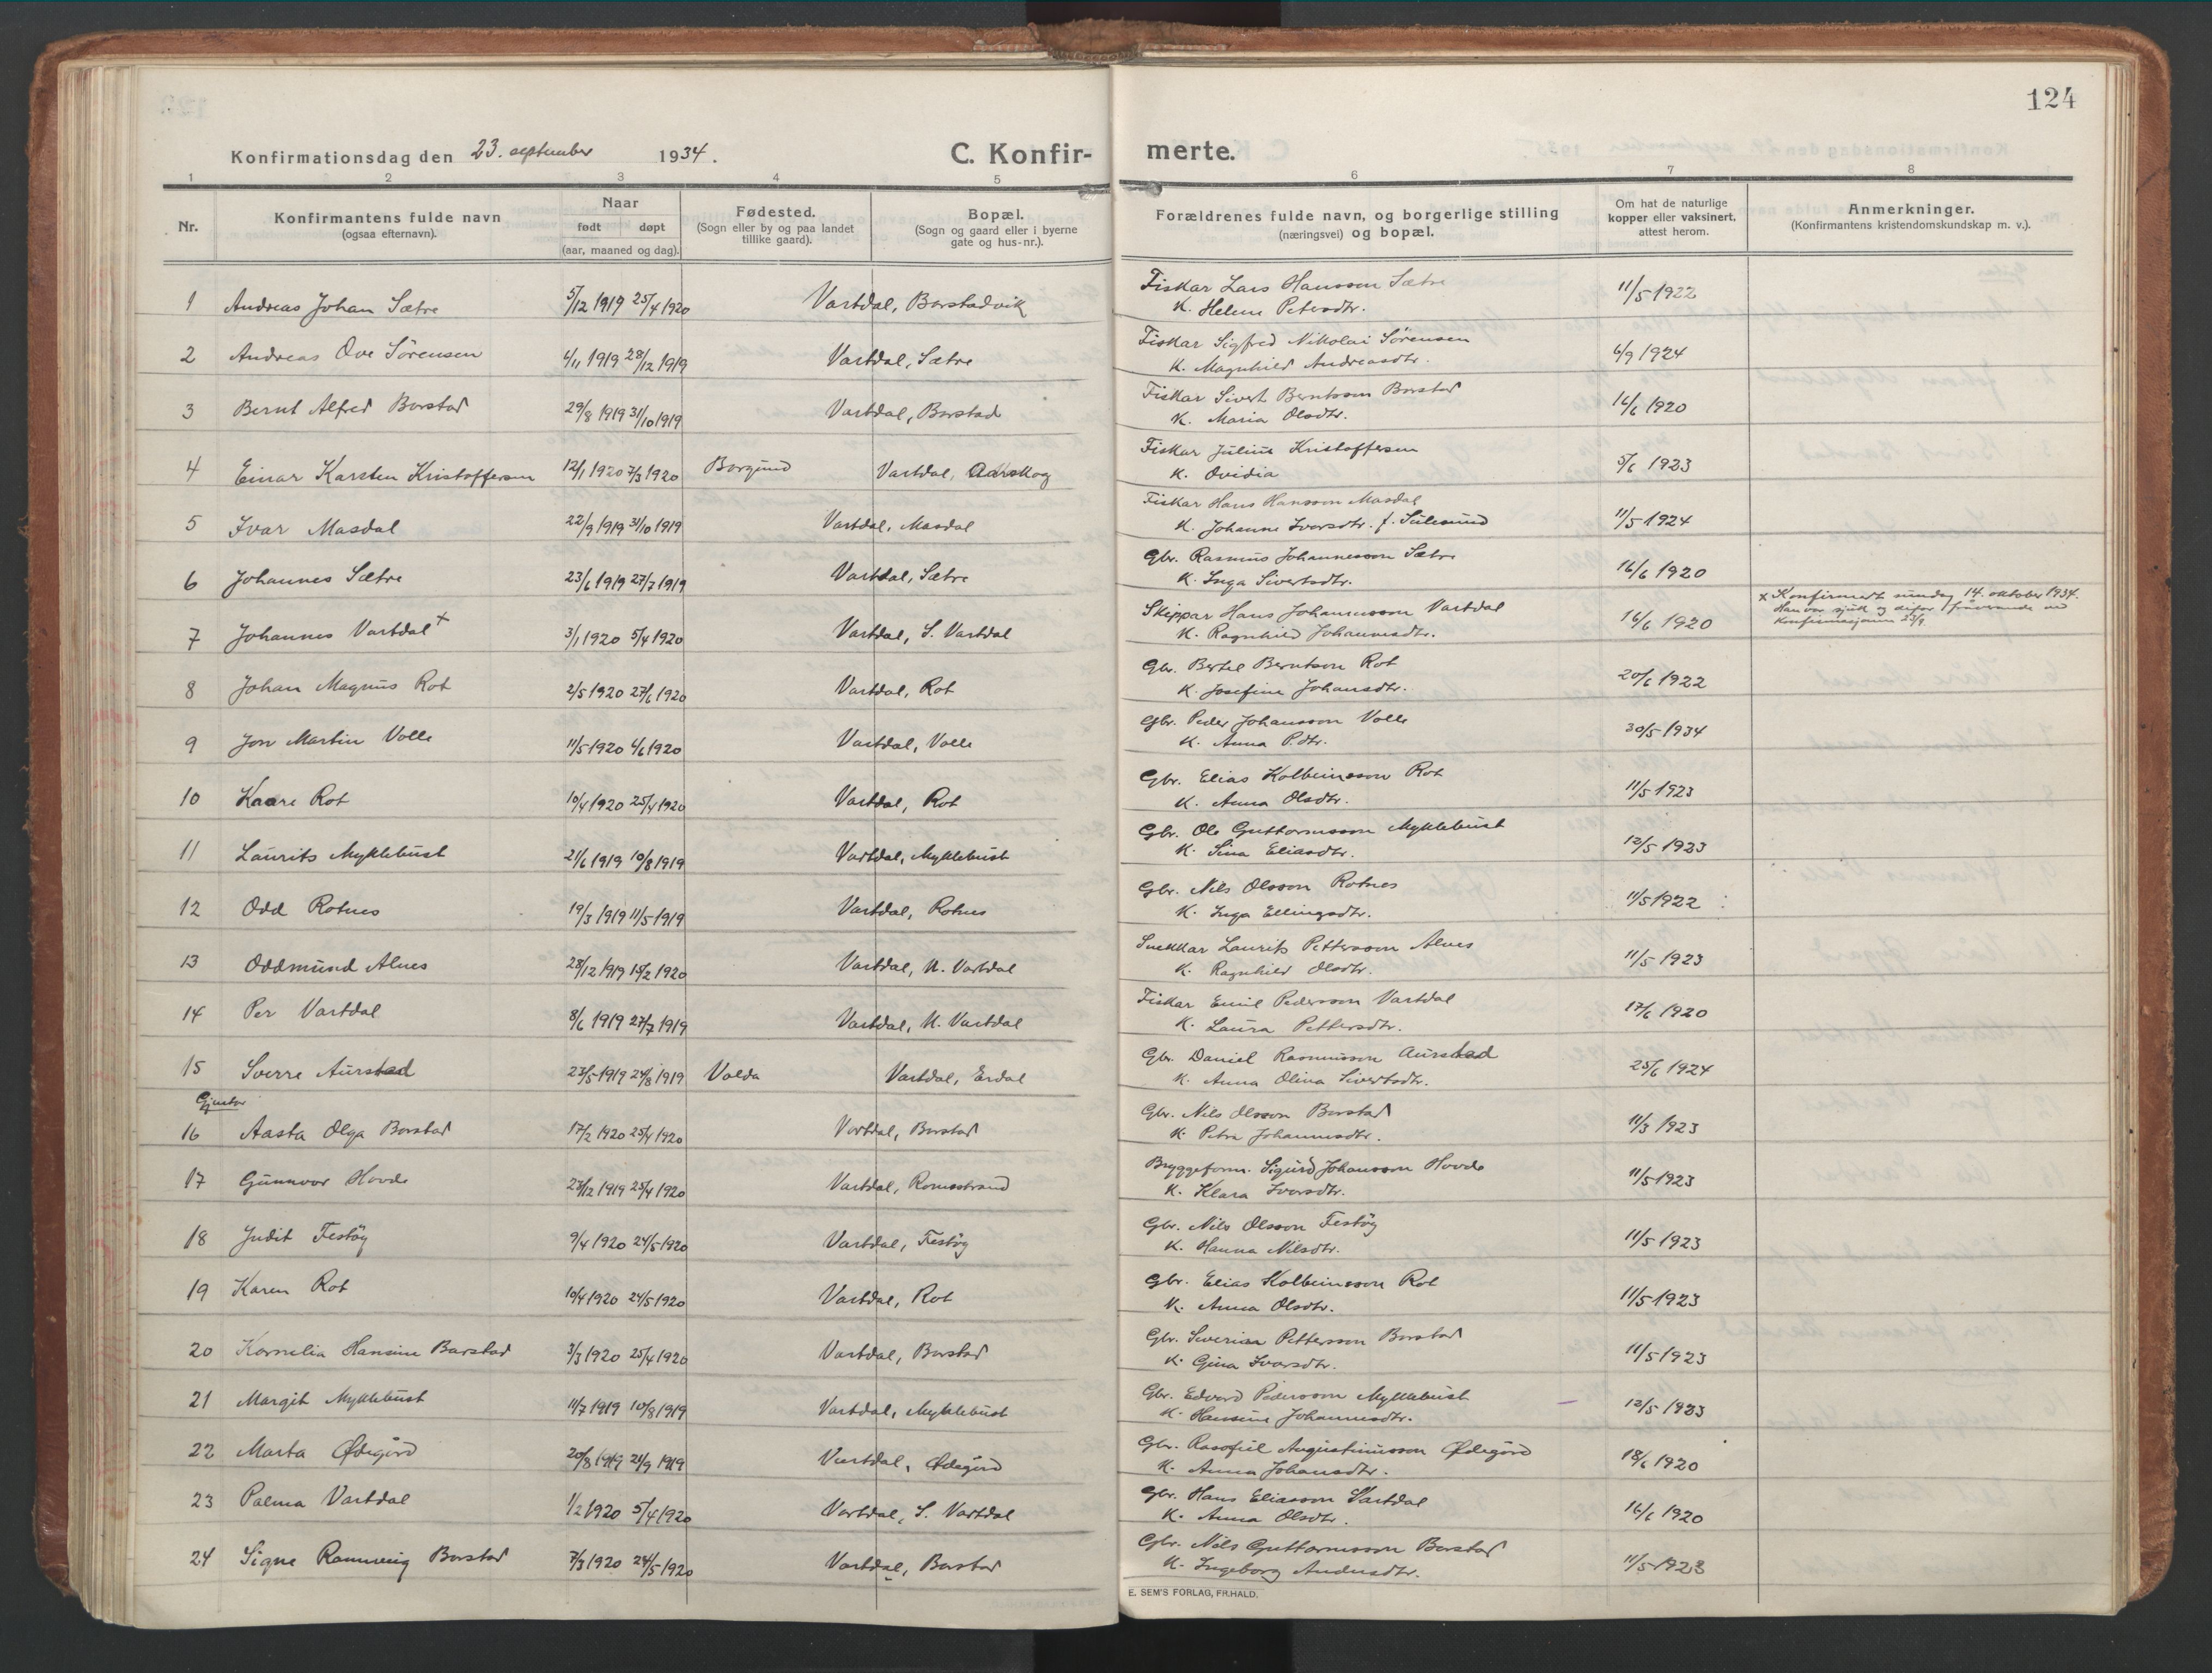 124
Konfirmationsdag den 23. september 1934.
C. Konfirmerte.
1 2 3 4 5 6 7 8
Nr.
Konfirmantens fulde navn
(ogsaa efternavn).
Naar
født døpt
(aar, maaned og dag).
Fødested.
(Sogn eller by og paa landet
tillike gaard).
Bopæl.
(Sogn og gaard eller i byerne
gate og hus-nr.).
Forældrenes fulde navn, og borgerlige stilling
(næringsvei) og bopæl.
Om hat de naturlige
kopper eller vaksinert,
attest herom.
Anmerkninger.
(Konfirmantens kristendomskundskap m. v.).
1 Andreas Johan Sætre 5/12 1919 25/4 1920 Vartdal, Barstadvik Fiskar Lars Hansson Sætre 11/5 1922
K. Helene Petersdtr.
2 Andreas Ove Sørensen 4/11 1919 28/12 1919 Vartdal, Sætre Fiskar Sigfred Nikolai Sørensen 6/9 1924
K. Magnhild Andreasdtr.
3 Bernt Alfred Barstad 29/8 1919 31/10 1919 Vartdal, Barstad Fiskar Sivert Berntsson Barstad 16/6 1920
K. Maria Olsdtr.
4 Einar Karsten Kristoffersen 12/1 1920 7/3 1920 Borgund Vartdal, Aarskog Fiskar Julius Kristoffersen 5/6 1923
K. Ovidia
5 Ivar Masdal 22/9 1919 31/10 1919 Vartdal, Masdal Fiskar Hans Hansson Masdal 11/5 1924
K. Johanne Iversdtr. f. Sulesund
6 Johannes Sætre 23/6 1919 27/7 1919 Vartdal, Sætre Gbr. Rasmus Johannesson Sætre 16/6 1920
K. Inga Sivertsdtr.
7 Johannes Vartdal x 3/1 1920 5/4 1920 Vartdal, S. Vartdal Skippar Hans Johannesson Vartdal 16/6 1920
K. Ragnhild Johannesdtr.
x Konfirmert sundag 14. oktober 1934.
Han var sjuk og difor fråverande ved
konfirmasjonen 23/9.
8 Johan Magnus Rot 2/5 1920 27/6 1920 Vartdal, Rot Gbr. Bertel Berntson Rot 20/6 1922
K. Josefine Johansdtr.
9 Jon Martin Volle 11/5 1920 4/6 1920 Vartdal, Volle Gbr. Peder Johansson Volle 30/5 1934
K. Anna P.dtr.
10 Kaare Rot 10/4 1920 25/4 1920 Vartdal, Rot Gbr. Elias Kolbeinsson Rot 11/5 1923
K. Anna Olsdtr.
11 Laurits Myklebust 21/6 1919 10/8 1919 Vartdal, Myklebust Gbr. Ole Guttormsson Myklebust 12/5 1923
K. Sina Eliasdtr.
12 Odd Rotnes 19/3 1919 11/5 1919 Vartdal, Rotnes Gbr. Nils Olsson Rotnes 11/5 1922
K. Inga Ellingsdtr.
13 Oddmund Alnes 28/12 1919 15/2 1920 Vartdal, N. Vartdal Snekkar Laurits Pettersson Alnes 11/5 1923
K. Ragnhild Olsdtr.
14 Per Vartdal 8/6 1919 27/7 1919 Vartdal, N. Vartdal Fiskar Emil Pedersson Vartdal 17/6 1920
K. Laura Pettersdtr.
15 Sverre Aurstad 23/5 1919 24/8 1919 Volda Vartdal, Erdal Gbr. Daniel Rasmusson Aurstad 25/6 1924
K. Anna Olina Sivertsdtr.
Gjentor
16 Aasta Olga Barstad 17/2 1920 25/4 1920 Vartdal, Barstad Gbr. Nils Olsson Barstad 11/3 1923
K. Petra Johannesdtr.
17 Gunnvor Hovde 27/12 1919 25/4 1920 Vartdal, Romestrand Bryggeform. Sigurd Johansson Hovde 11/5 1923
K. Klara Iversdtr.
18 Judit Festöy 9/4 1920 24/5 1920 Vartdal, Festöy Gbr. Nils Olsson Festöy 11/5 1923
K. Hanna Nilsdtr.
19 Karen Rot 10/4 1920 24/5 1920 Vartdal, Rot Gbr. Elias Kolbeinsson Rot 11/5 1923
K. Anna Olsdtr.
20 Kornelia Hansine Barstad 3/3 1920 25/4 1920 Vartdal, Barstad Gbr. Severian Pettersson Barstad 11/5 1923
K. Gina Iversdtr.
21 Margit Myklebust 11/7 1919 10/8 1919 Vartdal, Myklebust Gbr. Edvard Pedersson Myklebust 12/5 1923
K. Hansine Johannesdtr.
22 Marta Ødegård 20/8 1919 21/9 1919 Vartdal, Ødegård Gbr. Rasofiel Augustinusson Ødegård 18/6 1920
K. Anna Johansdtr.
23 Palma Vartdal 1/2 1920 5/4 1920 Vartdal, S. Vartdal Gbr. Hans Eliasson Vartdal 16/6 1920
K. Anna Olsdtr.
24 Signe Rannveig Barstad 7/3 1920 24/5 1920 Vartdal, Barstad Gbr. Nils Guttormsson Barstad 11/5 1923
K. Ingeborg Andersdtr.
E. SEM'S FORLAG, FR.HALD.